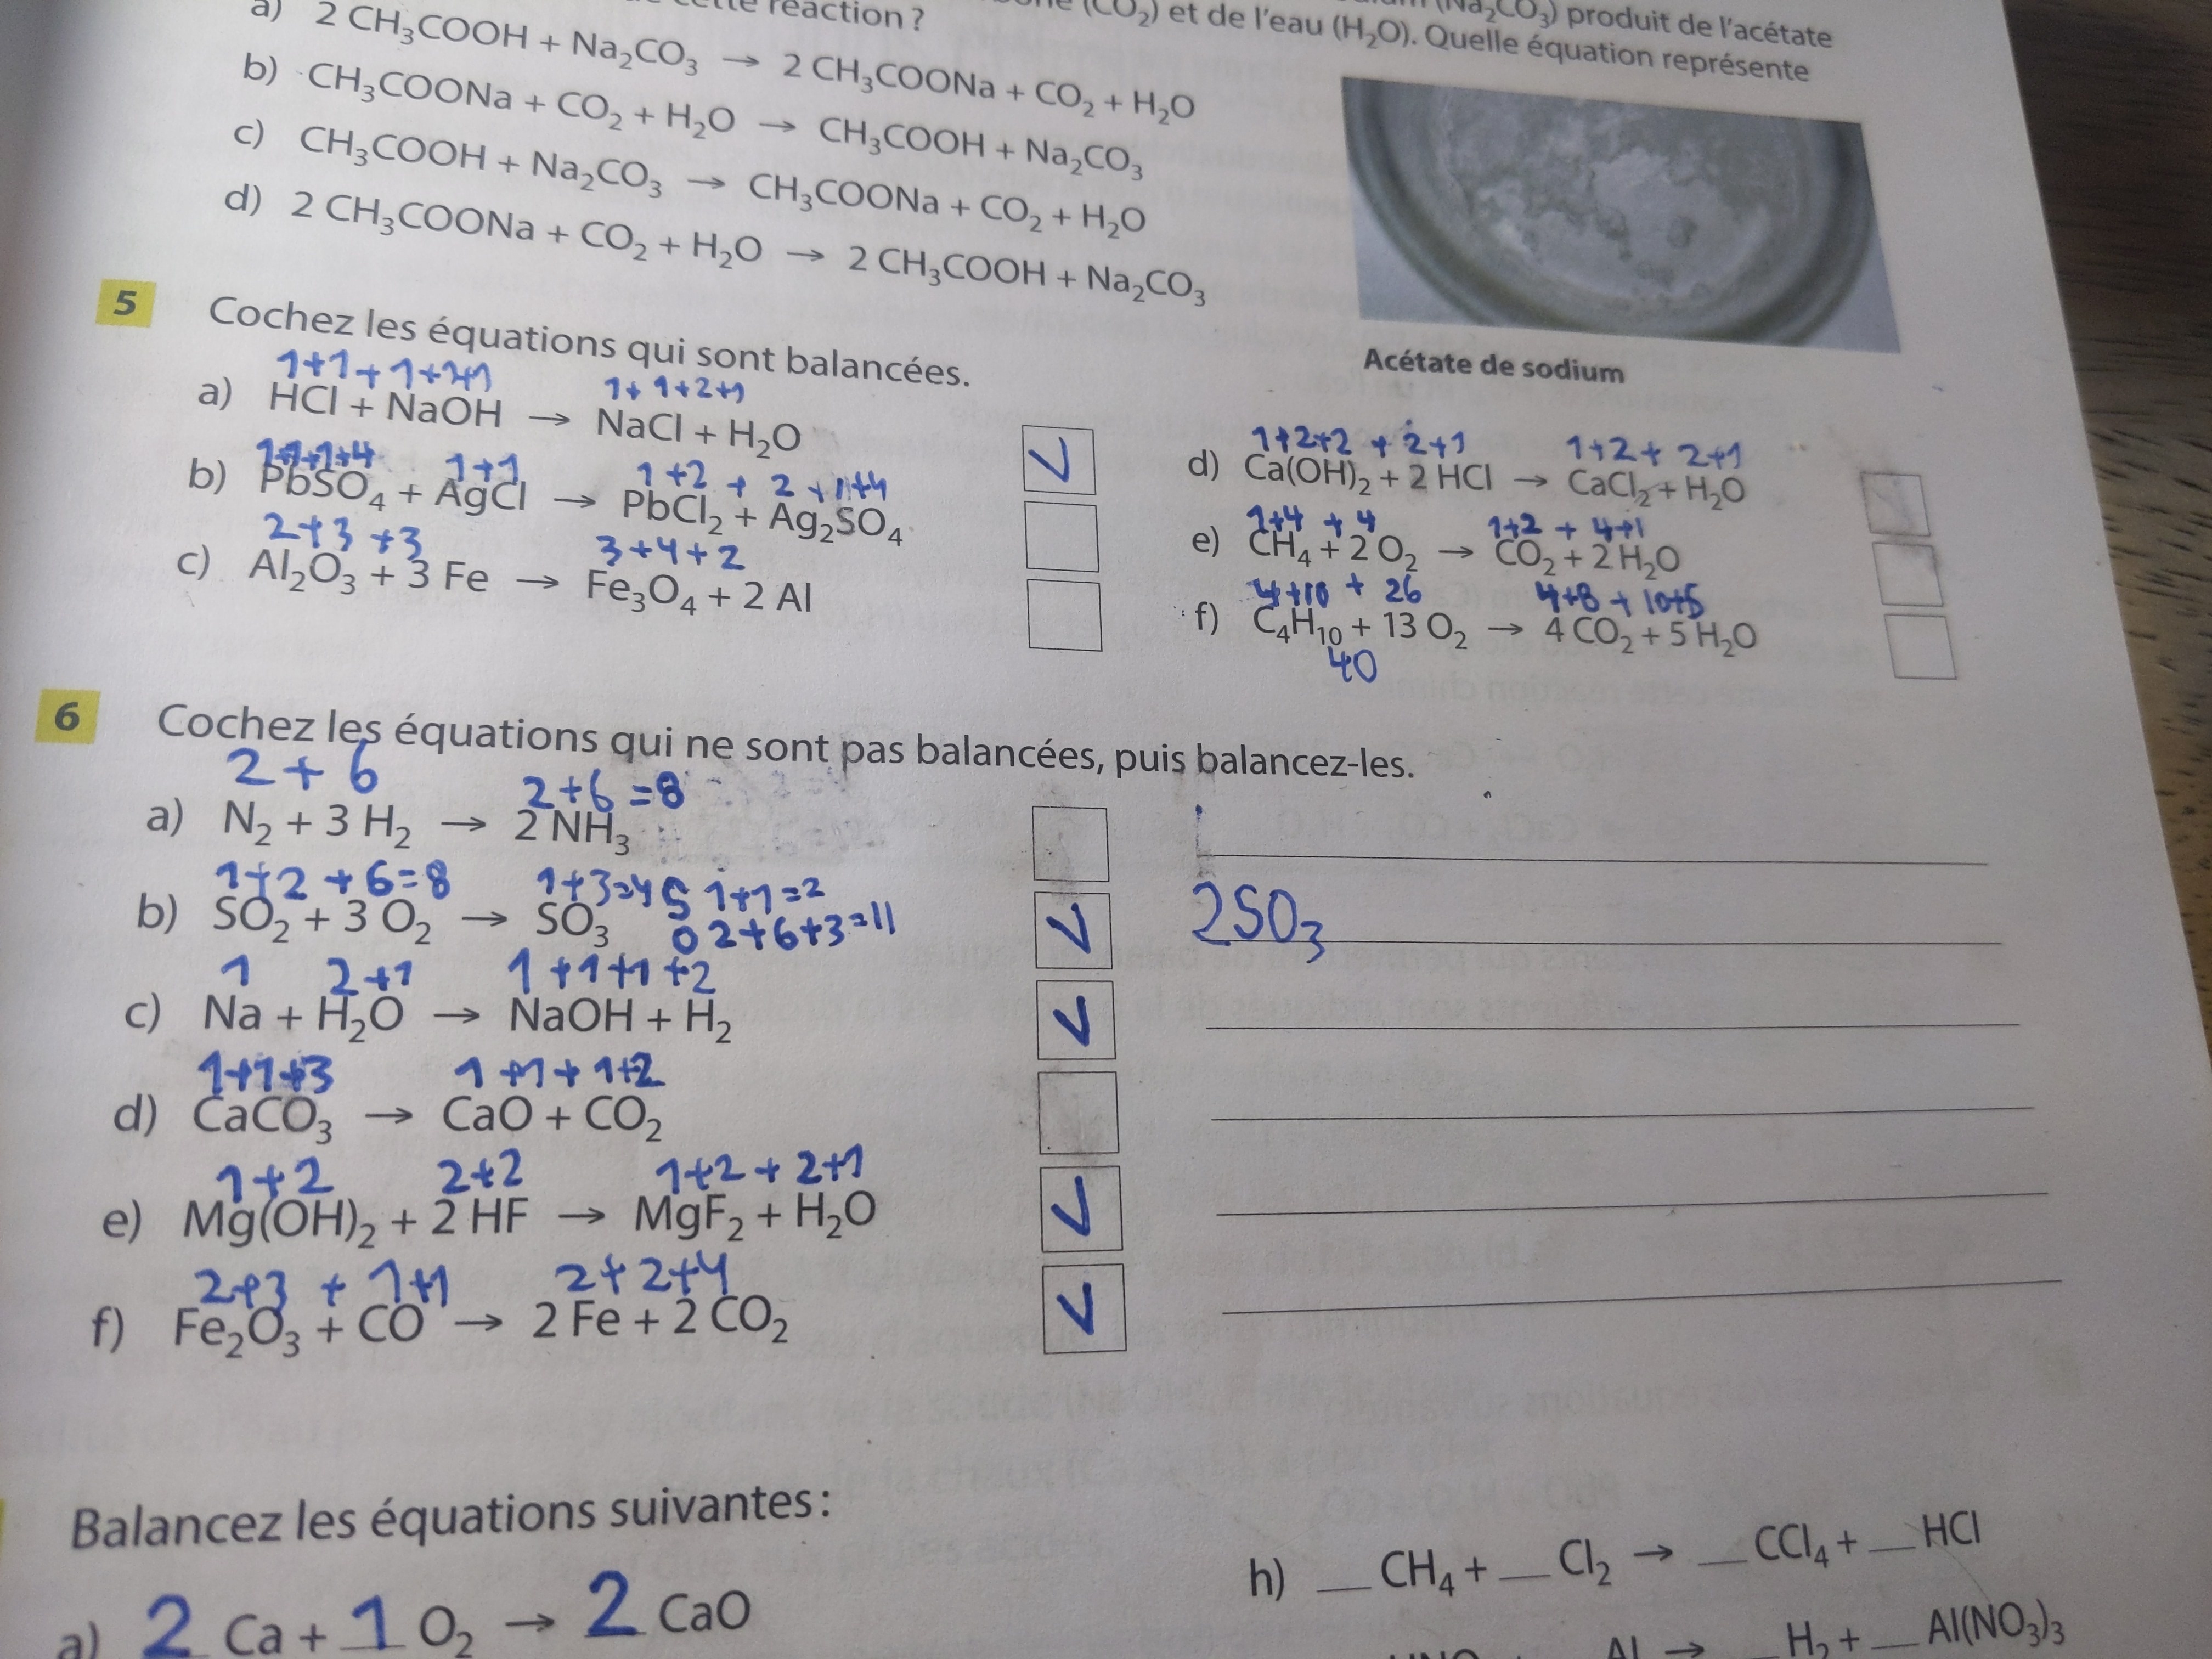 cette réaction ?
(CO₂) et de l'eau (H₂O). Quelle équation représente
(Na₂CO₃) produit de l'acétate
a) 2 CH₃COOH + Na₂CO₃ → 2 CH₃COONa + CO₂ + H₂O
b) CH₃COONa + CO₂ + H₂O → CH₃COOH + Na₂CO₃
c) CH₃COOH + Na₂CO₃ → CH₃COONa + CO₂ + H₂O
d) 2 CH₃COONa + CO₂ + H₂O → 2 CH₃COOH + Na₂CO₃
Acétate de sodium
5 Cochez les équations qui sont balancées.
1+1+1+1+1 1+1+2+1
a) HCl + NaOH → NaCl + H₂O ✓
1+1+4 1+1 1+2 + 2+1+4
b) PbSO₄ + AgCl → PbCl₂ + Ag₂SO₄
2+3+3 3+4+2
c) Al₂O₃ + 3 Fe → Fe₃O₄ + 2 Al
1+2+2 + 2+1 1+2+ 2+1
d) Ca(OH)₂ + 2 HCl → CaCl₂ + H₂O
1+4 + 4 1+2 + 4+1
e) CH₄ + 2 O₂ → CO₂ + 2 H₂O
4+10 + 26 4+8 + 10+5
f) C₄H₁₀ + 13 O₂ → 4 CO₂ + 5 H₂O
40
6 Cochez les équations qui ne sont pas balancées, puis balancez-les.
2+6 2+6=8
a) N₂ + 3 H₂ → 2 NH₃
1+2+6=8 1+3=4 S 1+1=2
b) SO₂ + 3 O₂ → SO₃ O 2+6+3=11 ✓ 2SO₃
1 2+1 1+1+1+2
c) Na + H₂O → NaOH + H₂ ✓
1+1+3 1+1+1+2
d) CaCO₃ → CaO + CO₂
1+2 2+2 1+2+2+1
e) Mg(OH)₂ + 2 HF → MgF₂ + H₂O ✓
2+3 + 1+1 2+2+4
f) Fe₂O₃ + CO → 2 Fe + 2 CO₂ ✓
Balancez les équations suivantes :
a) 2 Ca + 1 O₂ → 2 CaO
h) __ CH₄ + __ Cl₂ → __ CCl₄ + __ HCl
Al → __ H₂ + __ Al(NO₃)₃